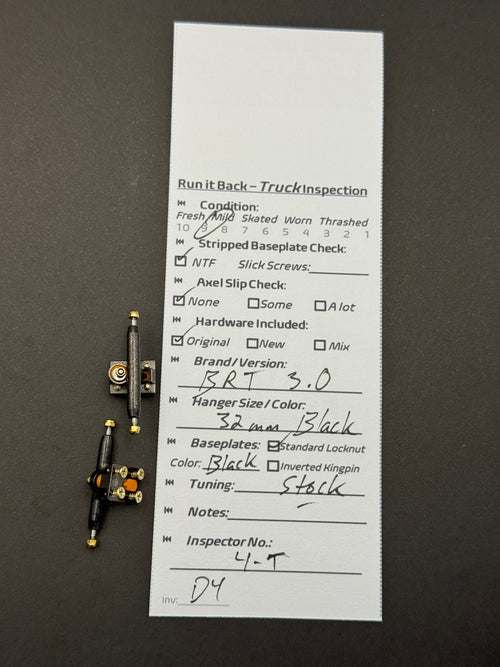 Run it Back – Truck Inspection
Condition:
Fresh Mild Skated Worn Thrashed
10 9 8 7 6 5 4 3 2 1
Stripped Baseplate Check:
NTF Slick Screws:
Axel Slip Check:
None Some A lot
Hardware Included:
Original New Mix
Brand/Version:
BRT 3.0
Hanger Size/Color:
32mm Black
Baseplates: Standard Locknut
Color: Black Inverted Kingpin
Tuning: Stock
Notes:
Inspector No.:
4-T
Inv: D4